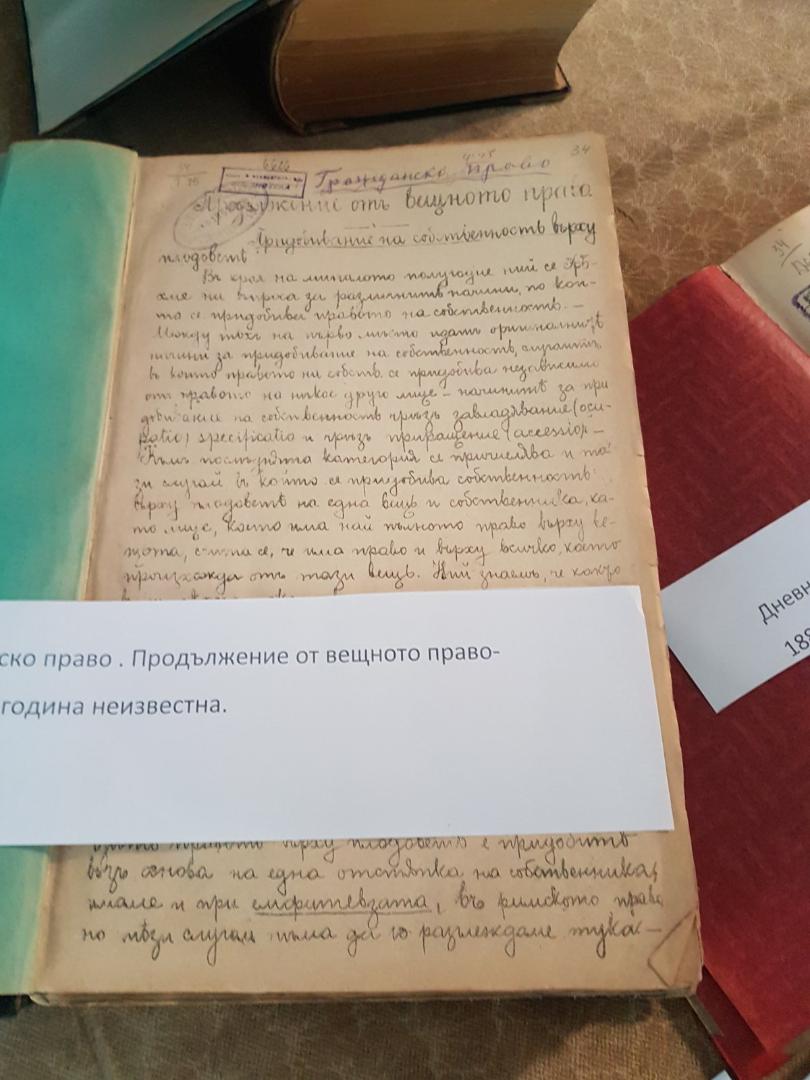 34
Гражданско право
Продължение отъ вещното право
Придобивание на собственность върху
плодоветѣ
Въ края на миналото полугодие ний се
за различнитѣ начини, по кои-
то се придобива правото на собственность. —
Между тѣхъ на първо мѣсто идатъ оригиналнитѣ
начини за придобивание на собственность, случаитѣ,
въ които правото ни собств. се придобива независимо
от правото на нѣкое друго лице — начинитѣ за при
на собственность чрѣзъ завладѣвание (occu-
patio) specificatio и чрѣзъ приращение (accessio). —
Къмъ послѣднята категория се причислява и то-
зи случай въ който се придобива собственность
върху плодоветѣ на една вещь и собственника, ка-
то лице, което има най пълното право върху ве-
щьта, счита се, че има право и върху всичко, което
произхожда отъ тази вещь. Ний знаемъ, че какво
ско право . Продължение от вещното право-
година неизвестна.
плодоветѣ е придобитъ
възъ основа на една отстѫпка на собственика,
имаме и при емфитевзата, въ римското право,
но тѣзи случаи нѣма да го разглеждаме тука —
34
Дневн
188